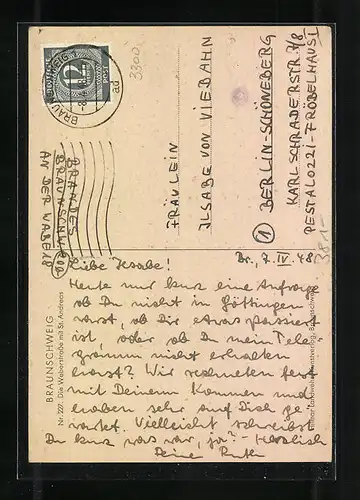 BRAUNSCHWEIG
Nr. 227. Die Weberstraße mit St. Andreas
DEUTSCHE
POST
12
BRAUNSCHWEIG
ad
3300
BRANDES
BRAUNSCHWEIG
AN DER WABE 18
FRÄULEIN
ILSABE VON VIEBAHN
1 BERLIN-SCHÖNEBERG
KARL SCHRADERSTR. 7/8
PESTALOZZI-FRÖBELHAUS I
38.-
Br., 7. IV. 48
Liebe Ilsabe!
Heute nur kurz eine Anfrage
ob Du nicht in Göttingen
warst, ob Dir etwas passiert
ist, oder ob Du mein Tele-
gramm nicht erhalten
hast? Wir rechneten fest
mit Deinem Kommen und
haben sehr auf Dich ge-
wartet. Vielleicht schreibst
Du kurz was war, ja? - Herzlich
Deine Ruth